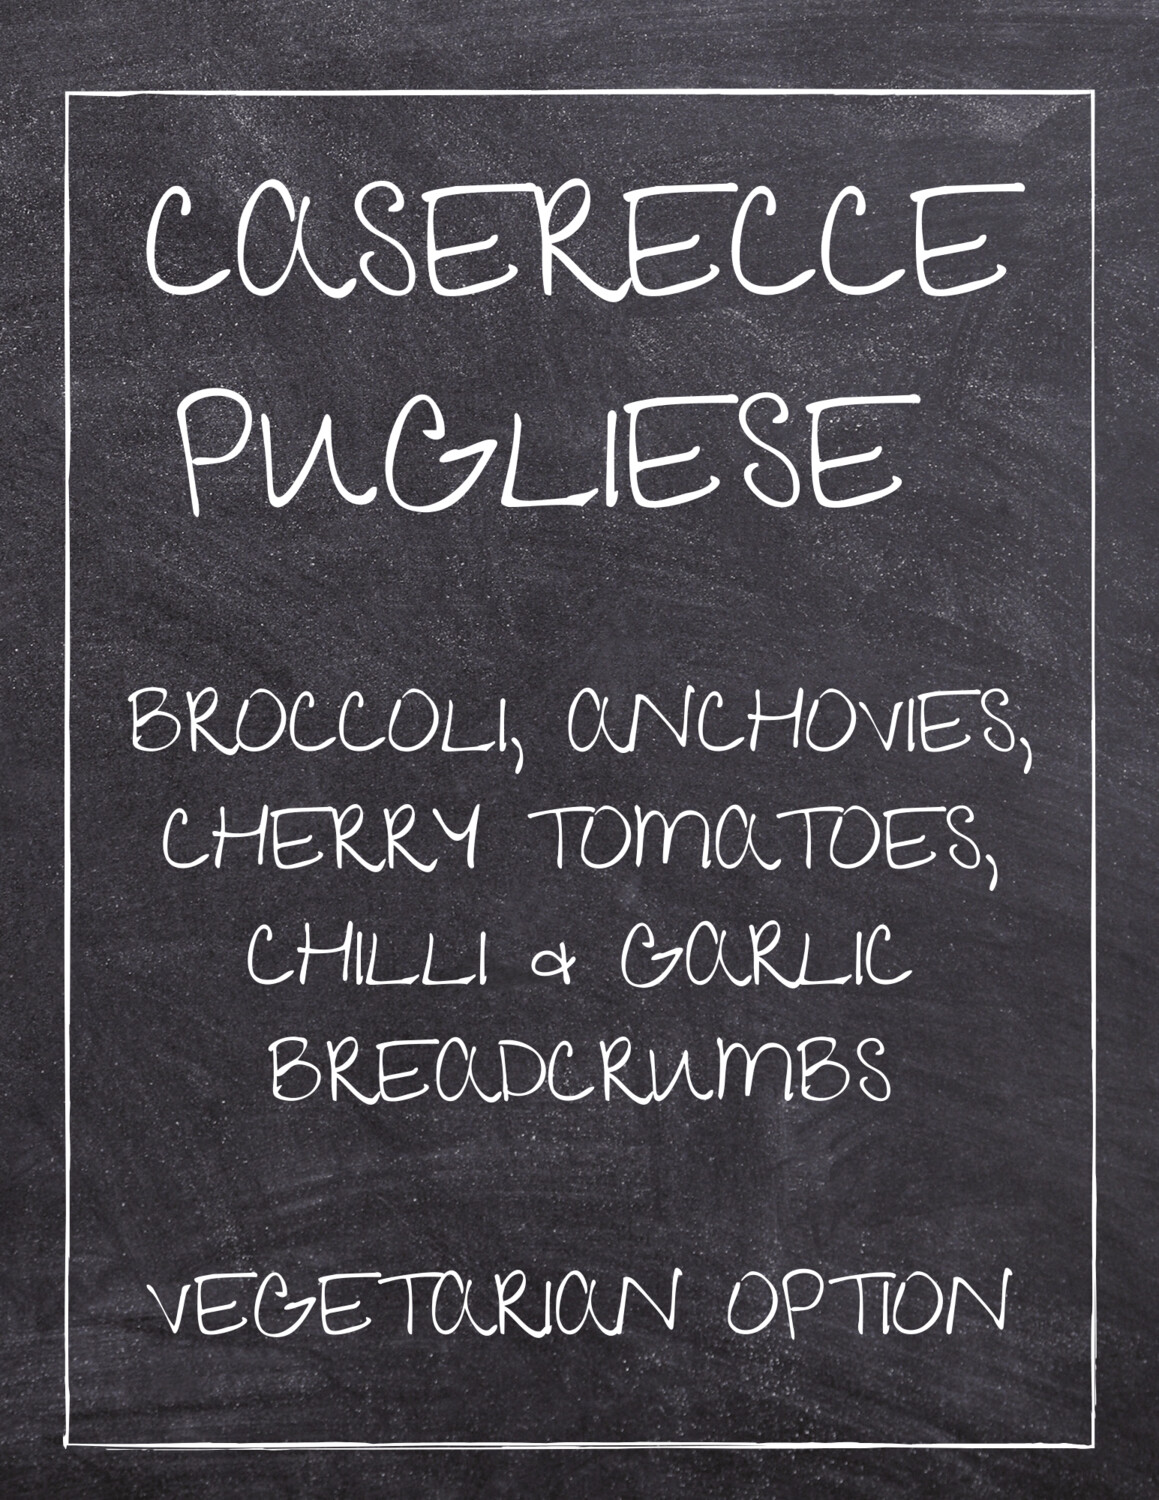 CASERECCE
PUGLIESE
BROCCOLI, ANCHOVIES,
CHERRY TOMATOES,
CHILLI & GARLIC
BREADCRUMBS
VEGETARIAN OPTION